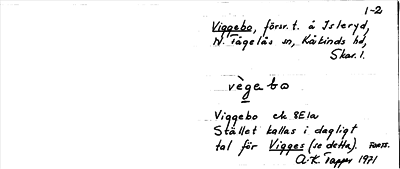 1-2
Viggebo, försv. t. å Isleryd,
N. Fågelås sn, Kåkinds hd,
Skar. l.
vège bω
Viggebo ek 8E1a
Stället kallas i dagligt
tal för Vigges (se detta). Forts.
A.K. Tapper 1971